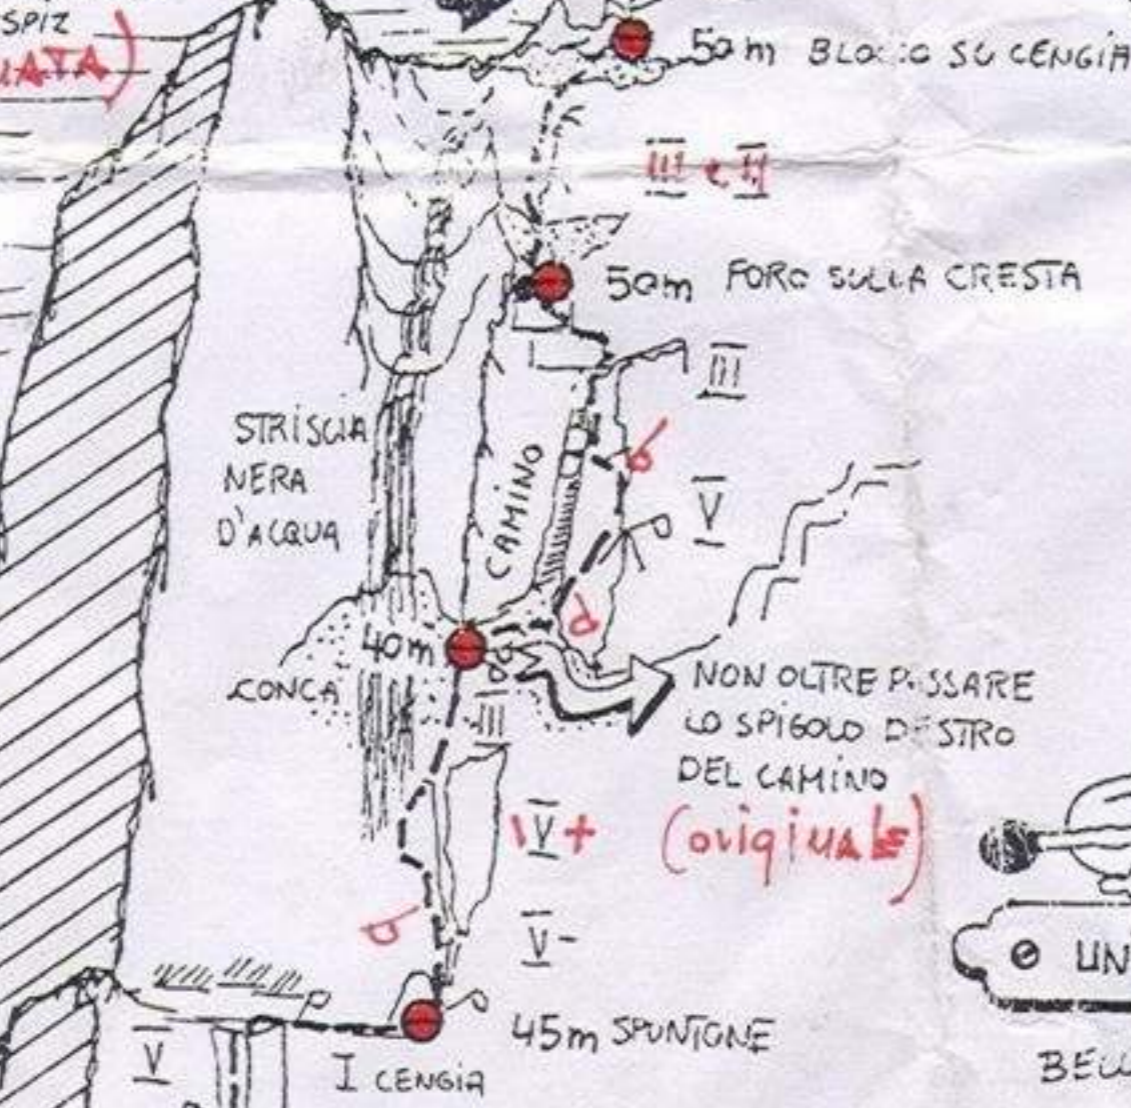 SPIZ
50m
SU CENGIA
III e II
50m FORO SULLA CRESTA
III
STRISCIA
NERA
D'ACQUA
CAMINO
V
40m
CONCA
III
NON OLTRE
LO SPIGOLO
DEL CAMINO
IV+ (originale)
V-
45m SPUNTONE
V
I CENGIA
UN